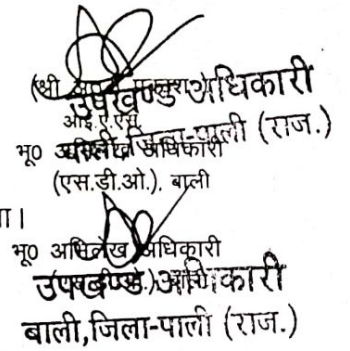 (श्री
उपखण्ड अधिकारी
आई.ए.एस.
बाली, जिला-पाली (राज.)
भू० अभिलेख अधिकारी
(एस.डी.ओ.). बाली
ा।
भू० अभिलेख अधिकारी
उपखण्ड अधिकारी
बाली, जिला-पाली (राज.)